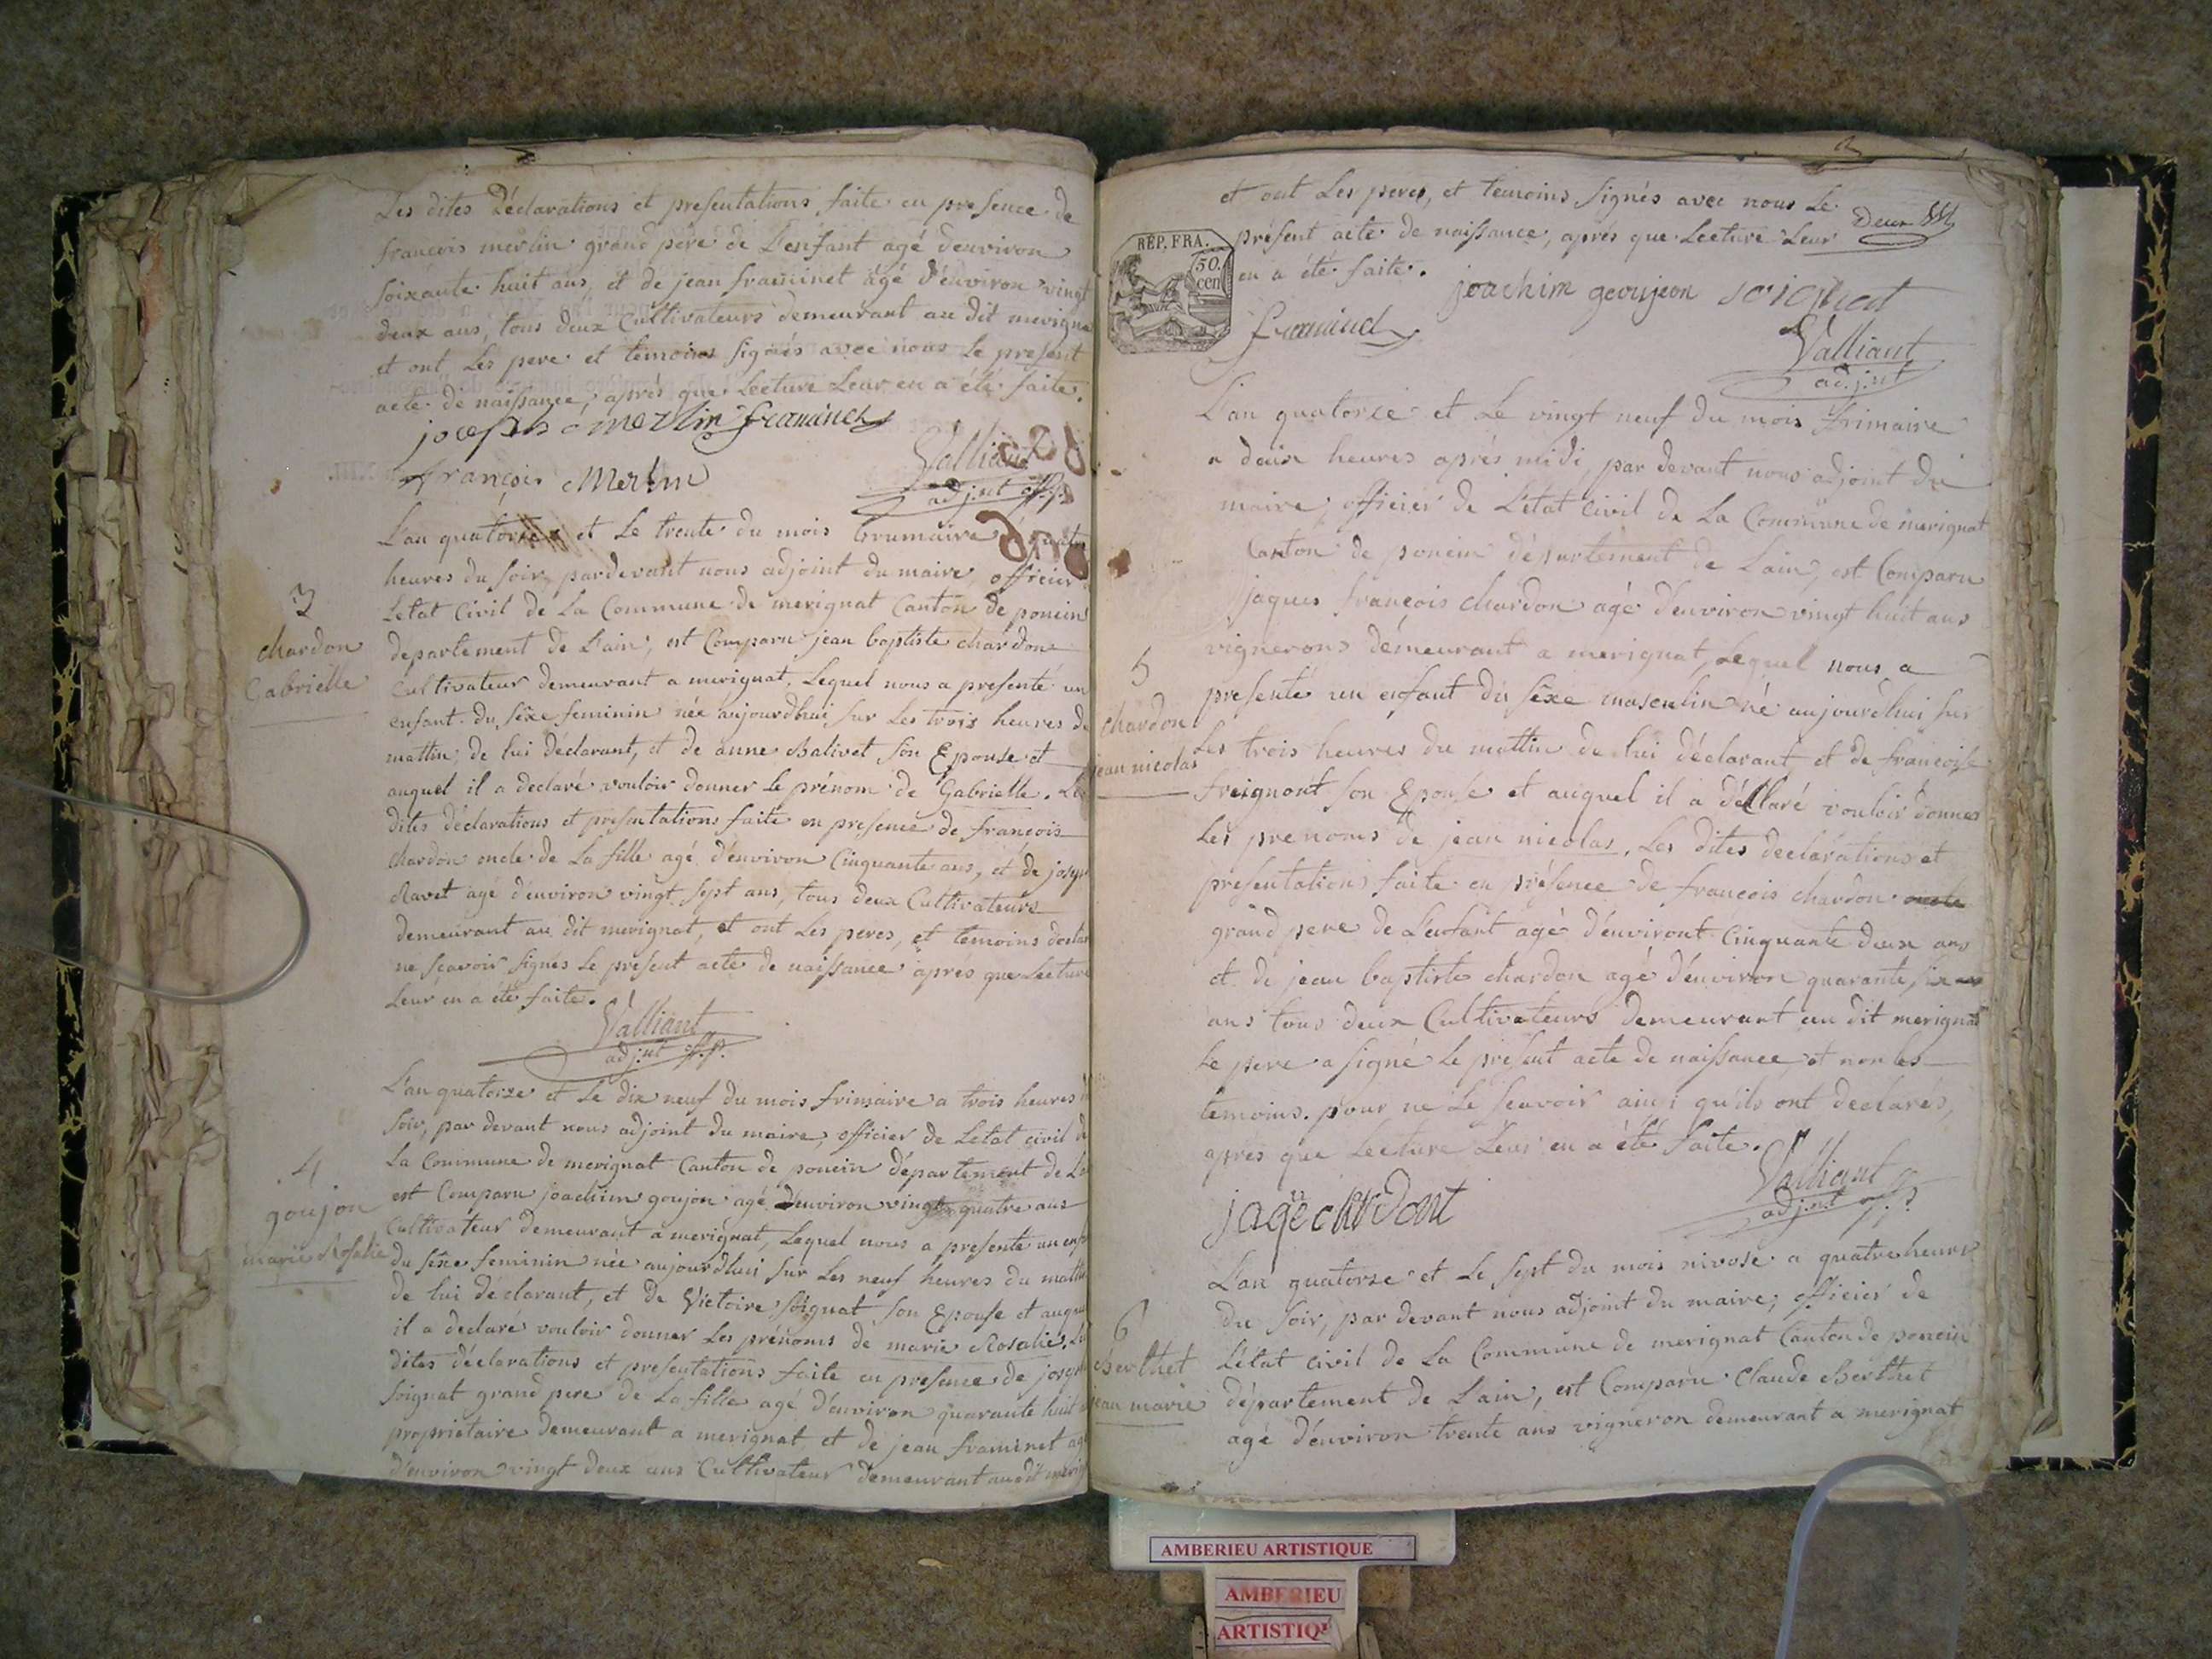 Les dites déclarations et presentations faite en presence de
françois merlin grand pere de L'enfant agé d'environ
soixante huit ans, et de jean framinet agé d'environ vingt
deux ans, tous deux Cultivateurs demeurant au dit merigna
et ont, Les pere et temoins signés avec nous Le present
acte de naissance, aprés que Lecture Leur en a été faite.
joseph merlin framinet
françois Merlin
Valliant
adj.nt off.p.
L'an quatorze et Le trente du mois brumaire
heures du soir, pardevant nous adjoint du maire, officier
Letat Civil de La Commune de merignat Canton de poncin
departement de L'ain, est Comparu jean baptiste chardon
Cultivateur demeurant a merignat, Lequel nous a presenté un
enfant du sêxe feminin née aujourdhui sur Les trois heures de
mattin, de lui déclarant, et de anne Balivet son Epouse et
auquel il a declaré vouloir donner Le prénom de Gabrielle. Les
dites déclarations et presentations faite en presence de françois
chardon oncle de La fille agé d'environ Cinquante ans, et de josep
Ravet agé d'environ vingt sept ans, tous deux Cultivateurs
demeurant au dit merignat, et ont Les peres, et temoins
ne sçavoir signés Le présent acte de naissance apres que Lecture
Leur en a été faite.
Valliant
adj.nt off.p.
3
chardon
Gabrielle
L'an quatorze et Le dix neuf du mois frimaire a trois heures
soir, par devant nous adjoint du maire, officier de Letat civil de
La Commune de merignat Canton de poncin département de L
est Comparu joachim goujon agé d'environ vingt quatre ans
Cultivateur demeurant a merignat, Lequel nous a presenté un enf
du sêxe feminin née aujourdhui sur Les neuf heures du matti
de lui déclarant, et de Victoire soignat son Epouse et auque
il a declaré vouloir donner Les prenoms de marie Rosalie. Le
dites déclarations et presentations faite en presence de joseph
soignat grand pere de La fille agé d'environ quarante huit
propriétaire demeurant a merignat et de jean framinet ag
d'environ vingt deux ans Cultivateur demeurant audit merig
4
goujon
marie Rosalie
et ont Les peres, et temoins signés avec nous Le
présent acte de naissance, aprés que Lecture Leur
en a été faite.
Deux
RÉP. FRA.
50.
cen
joachim geoujeon soignat
framinet
Valliant
adj.nt
L'an quatorze et Le vingt neuf du mois frimaire
a deux heures aprés midi, par devant nous adjoint du
maire, officier de L'état civil de La Commune de merignat
Canton de poncin département de L'ain, est Comparu
jaques françois chardon agé d'environ vingt huit ans
vignerons démeurant a merignat, Lequel nous a
presenté un enfant du sêxe masculin né aujourdhui sur
Les trois heures du mattin de lui déclarant et de françoise
freignont son Epouse et auquel il a déclaré vouloir donner
Les prenoms de jean nicolas. Les dites declarations et
presentations faite en présence de françois chardon oncle
grand pere de L'enfant agé d'environt Cinquante deux ans
et de jean baptiste chardon agé d'environ quarante six
ans tous deux Cultivateurs demeurant au dit merignat
Le pere a signé Le présent acte de naissance et non les
temoins. pour ne Le sçavoir ainsi quils ont declarés,
aprés que Lecture Leur en a été faite.
5
chardon
jean nicolas
Valliant
adj.nt off.p
L'an quatorze et Le sept du mois nivose a quatre heures
du soir, par devant nous adjoint du maire, officier de
L'état civil de La Commune de merignat Canton de poncin
département de L'ain, est Comparu Claude Berthet
agé d'environ trente ans vigneron demeurant a merignat
6
Berthet
jean marie
AMBERIEU ARTISTIQUE
AMBERIEU
ARTISTIQ